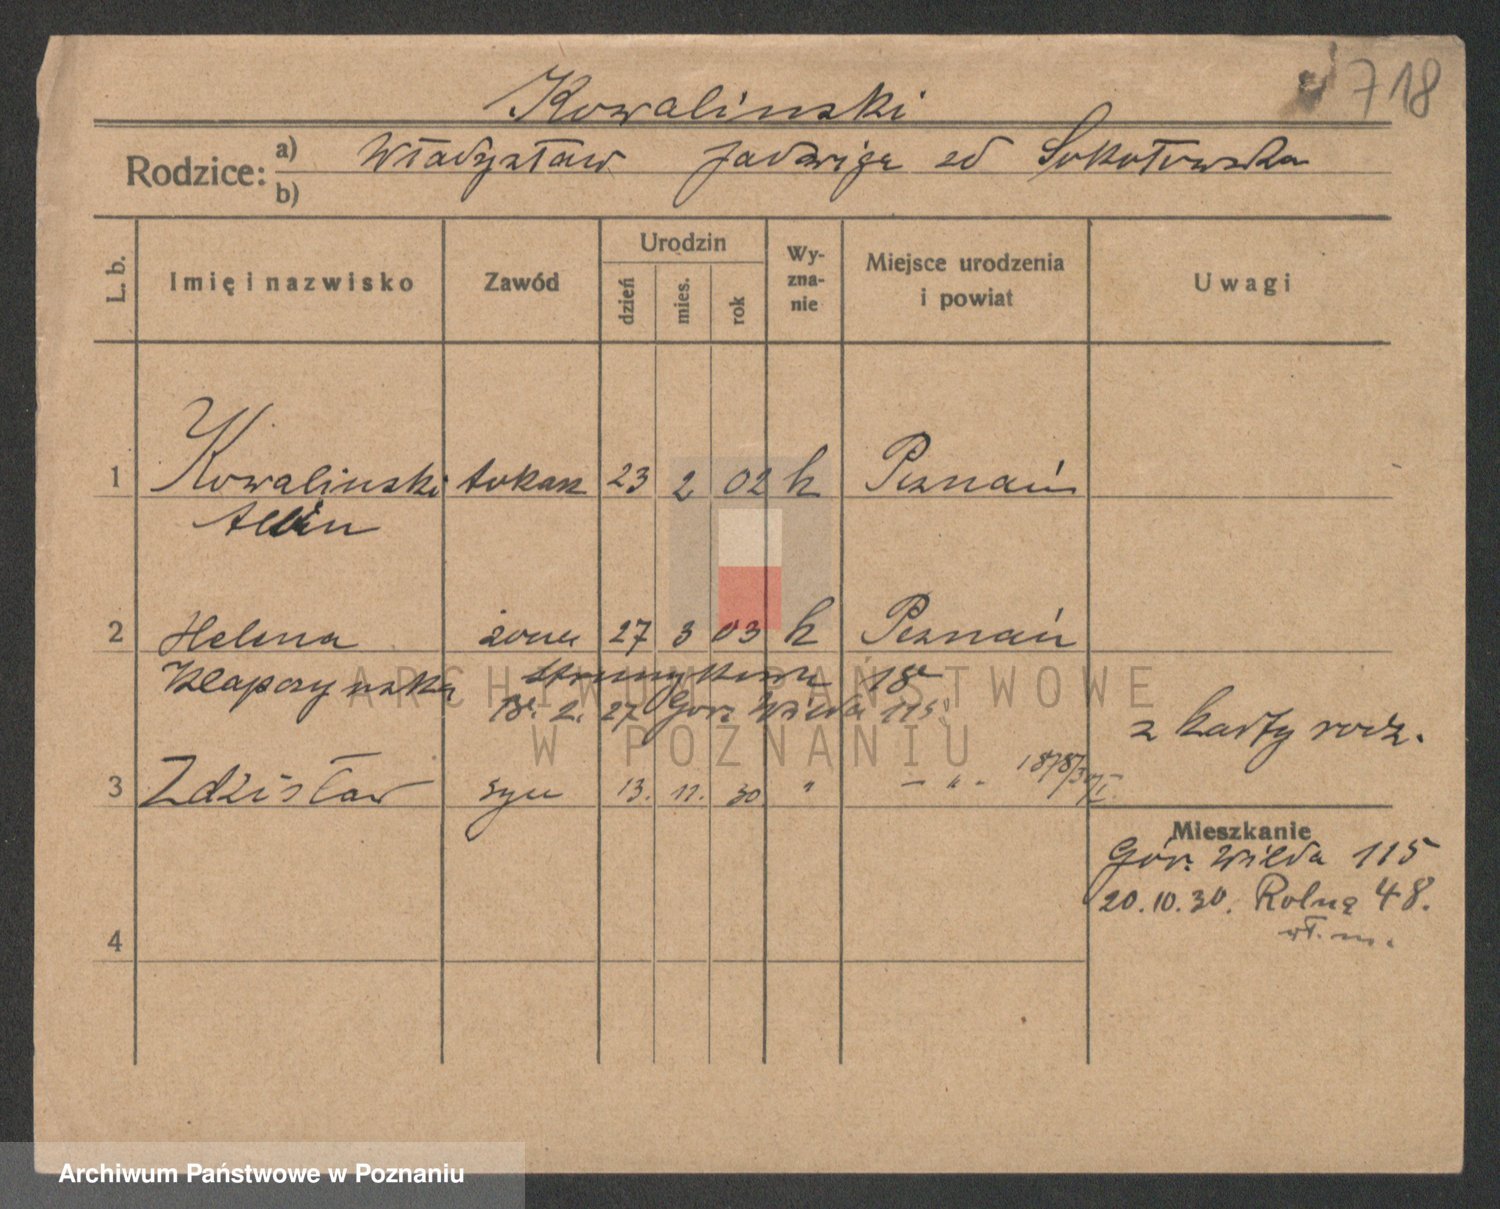 718
Kowalinski
Rodzice: a) Władysław Jadwiga zd Sokołowska
b)
L. b. Imię i nazwisko Zawód Urodzin dzień mies. rok Wy-zna-nie Miejsce urodzenia i powiat Uwagi
1 Kowalinski tokarz 23 2 02 k Poznań
Albin
2 Helena żona 27 3 03 k Poznań
Klapczyńska 18
18. 2. 27 Gór. Wilda 115
z karty rodz.
3 Zdzisław syn 13. 11. 30 " - " -
Mieszkanie
Gór. Wilda 115
20.10.30. Rolna 48.
wł. m.
4
ARCHIWUM PAŃSTWOWE
W POZNANIU
Archiwum Państwowe w Poznaniu